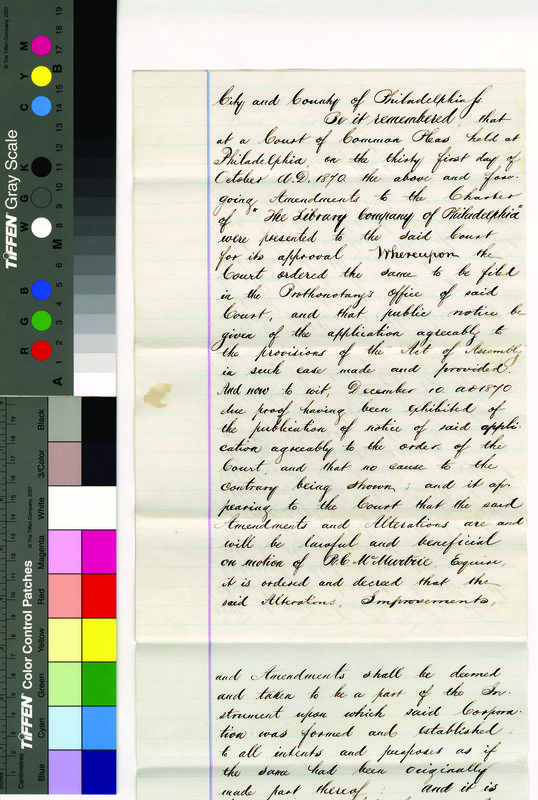 City and County of Philadelphia ss
Be it remembered, that
at a Court of Common Pleas held at
Philadelphia, on the thirty first day of
October A.D. 1870. the above and fore-
going Amendments to the Charter
of "The Library Company of Philadelphia"
were presented to the said Court
for its approval Whereupon the
Court ordered the same to be filed
in the Prothonotary's Office of said
Court, and that public notice be
given of the application agreeably to
the provisions of the Act of Assembly
in such case made and provided.
And now to wit, December 10. AD 1870
due proof having been exhibited of
the publication of notice of said appli-
cation agreeably to the order of the
Court and that no cause to the
contrary being shown; and it ap-
pearing to the Court that the said
Amendments and Alterations are and
will be lawful and beneficial
on motion of R.C. McMurtrie, Esquire,
it is ordered and decreed that the
said Alterations, Improvements,
and Amendments shall be deemed
and taken to be a part of the In-
strument upon which said Corpora-
tion was formed and established:
to all intents and purposes as if
the same had been originally
made part thereof: and it is
TIFFEN Gray Scale
© The Tiffen Company, 2007
R G B W G K C Y M
A 1 2 3 4 5 6 M 8 9 10 11 12 13 14 15 B 17 18 19
TIFFEN Color Control Patches
© The Tiffen Company, 2007
Centimetres
Blue Cyan Green Yellow Red Magenta White 3/Color Black